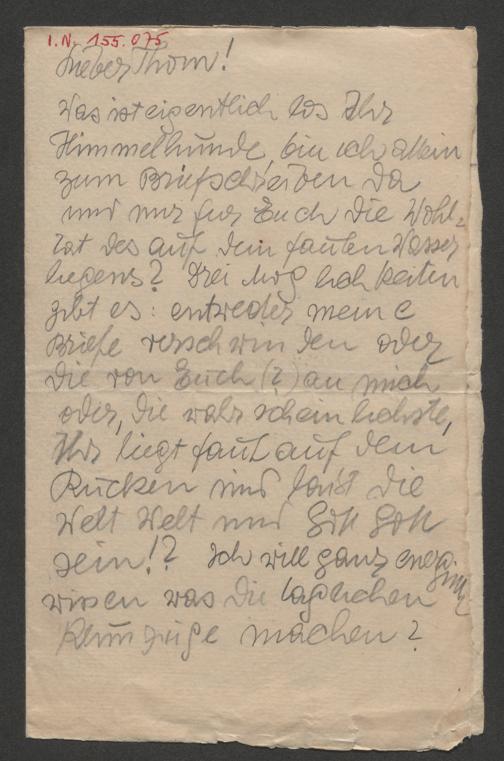 I.N. 155.075
Lieber Thom!
Was ist eigentlich los Ihr
Himmelhunde, bin ich allein
zum Briefschreiben da
und nur für Euch die Wohl=
tat des auf dem faulen Wasser
liegens? Drei Möglichkeiten
gibt es: entweder meine
Briefe verschwinden oder
die von Euch (?) an mich
oder, die wahrscheinlichste,
Ihr liegt faul auf dem
Rücken und lasst die
Welt Welt und Gott Gott
sein!? Ich will ganz energisch
wissen was die
machen?